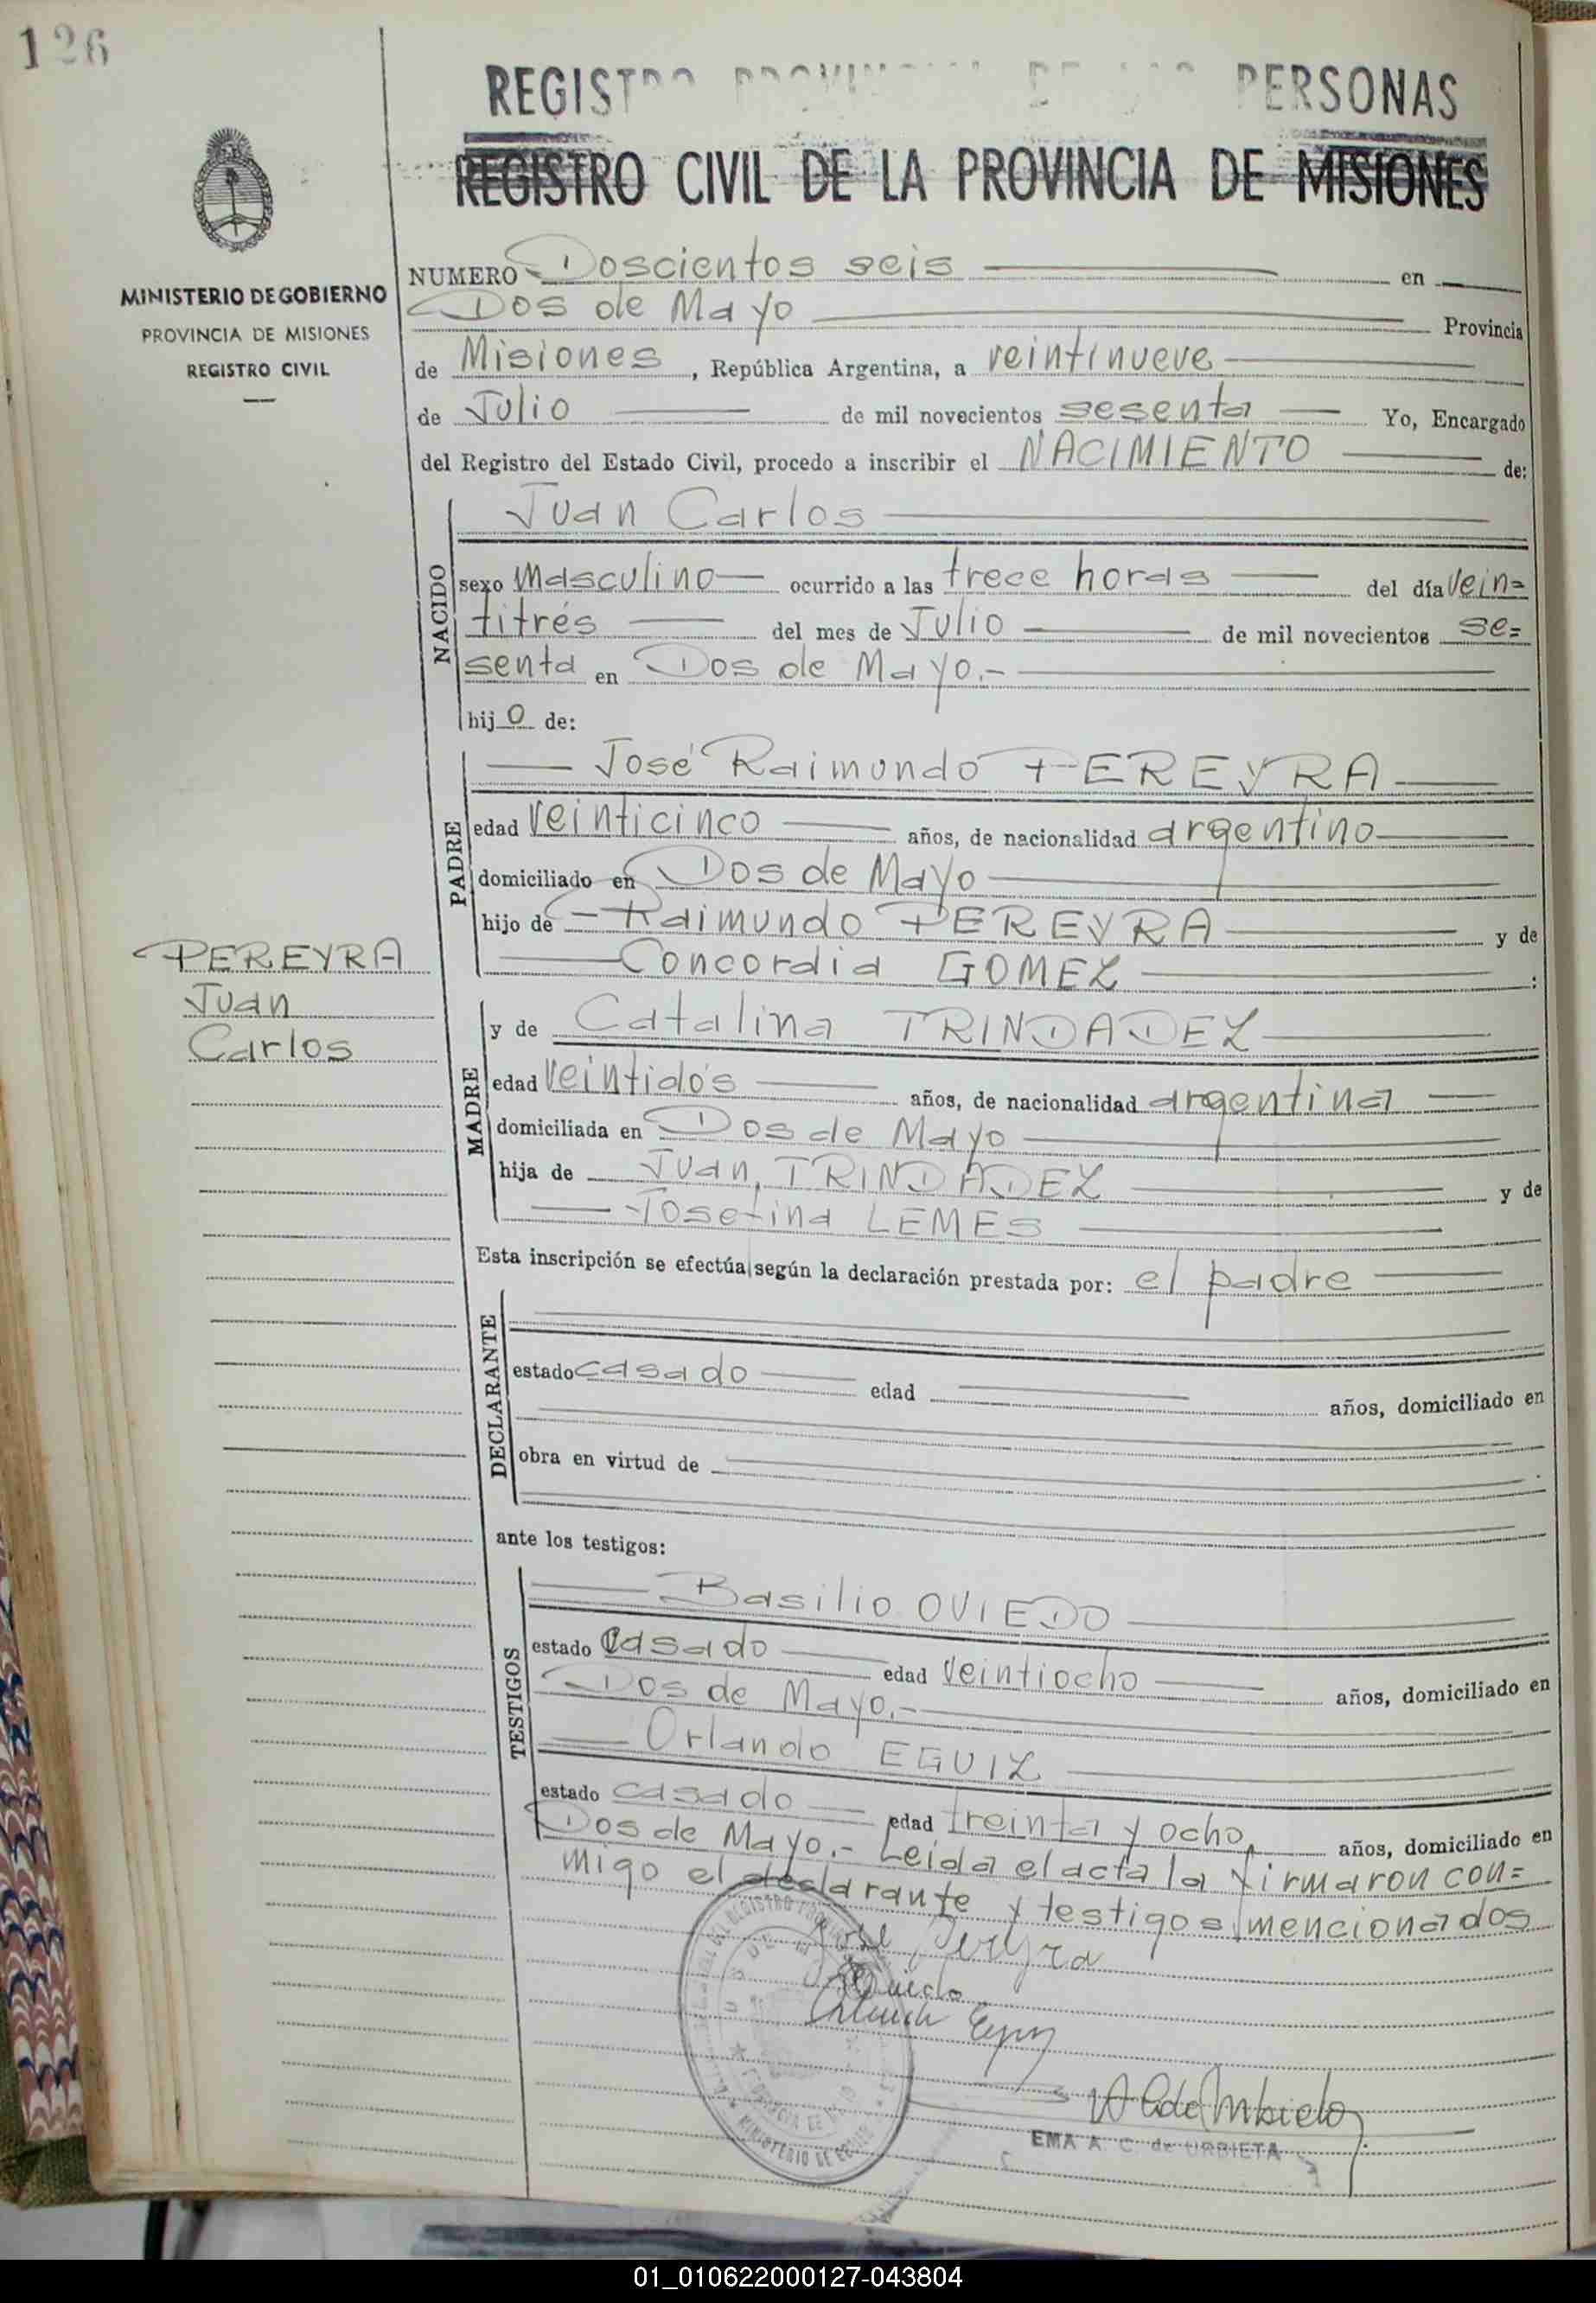 126
REGISTRO PROVINCIAL DE LAS PERSONAS
REGISTRO CIVIL DE LA PROVINCIA DE MISIONES
MINISTERIO DE GOBIERNO
PROVINCIA DE MISIONES
REGISTRO CIVIL
NUMERO Doscientos seis en
Dos de Mayo Provincia
de Misiones, República Argentina, a veintinueve
de Julio de mil novecientos sesenta Yo, Encargado
del Registro del Estado Civil, procedo a inscribir el NACIMIENTO de:
NACIDO
Juan Carlos
sexo Masculino ocurrido a las trece horas del día vein=
titrés del mes de Julio de mil novecientos se=
senta en Dos de Mayo.-
hijo de:
PADRE
José Raimundo PEREYRA
edad veinticinco años, de nacionalidad argentino
domiciliado en Dos de Mayo
hijo de Raimundo PEREYRA y de
Concordia GOMEZ :
PEREYRA
Juan
Carlos
MADRE
y de Catalina TRINDADEZ
edad veintidós años, de nacionalidad argentina
domiciliada en Dos de Mayo
hija de Juan TRINDADEZ y de
Josefina LEMES
Esta inscripción se efectúa según la declaración prestada por: el padre
DECLARANTE
estado casado edad años, domiciliado en
obra en virtud de
ante los testigos:
TESTIGOS
Basilio OVIEDO
estado casado edad veintiocho años, domiciliado en
Dos de Mayo.-
Orlando EGUIZ
estado casado edad treinta y ocho años, domiciliado en
Dos de Mayo.- Leída el acta la firmaron con=
migo el declarante y testigos mencionados
José Pereyra
Oviedo
EMA A. C. de URBIETA
MINISTERIO DE
01_010622000127-043804